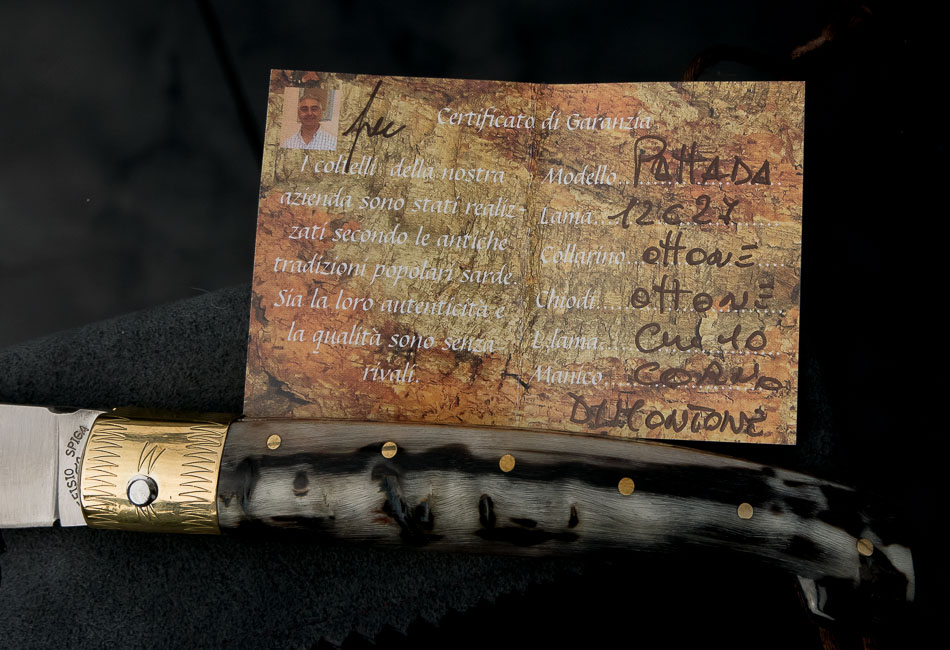 Certificato di Garanzia
I coltelli della nostra
azienda sono stati realiz-
zati secondo le antiche
tradizioni popolari sarde.
Sia la loro autenticità e
la qualità sono senza
rivali.
Modello PATTADA
Lama 12C27
Collarino OTTONE
Chiodi OTTONE
L.lama
Manico CORNO
DI MONTONE
SISIO SPIGA